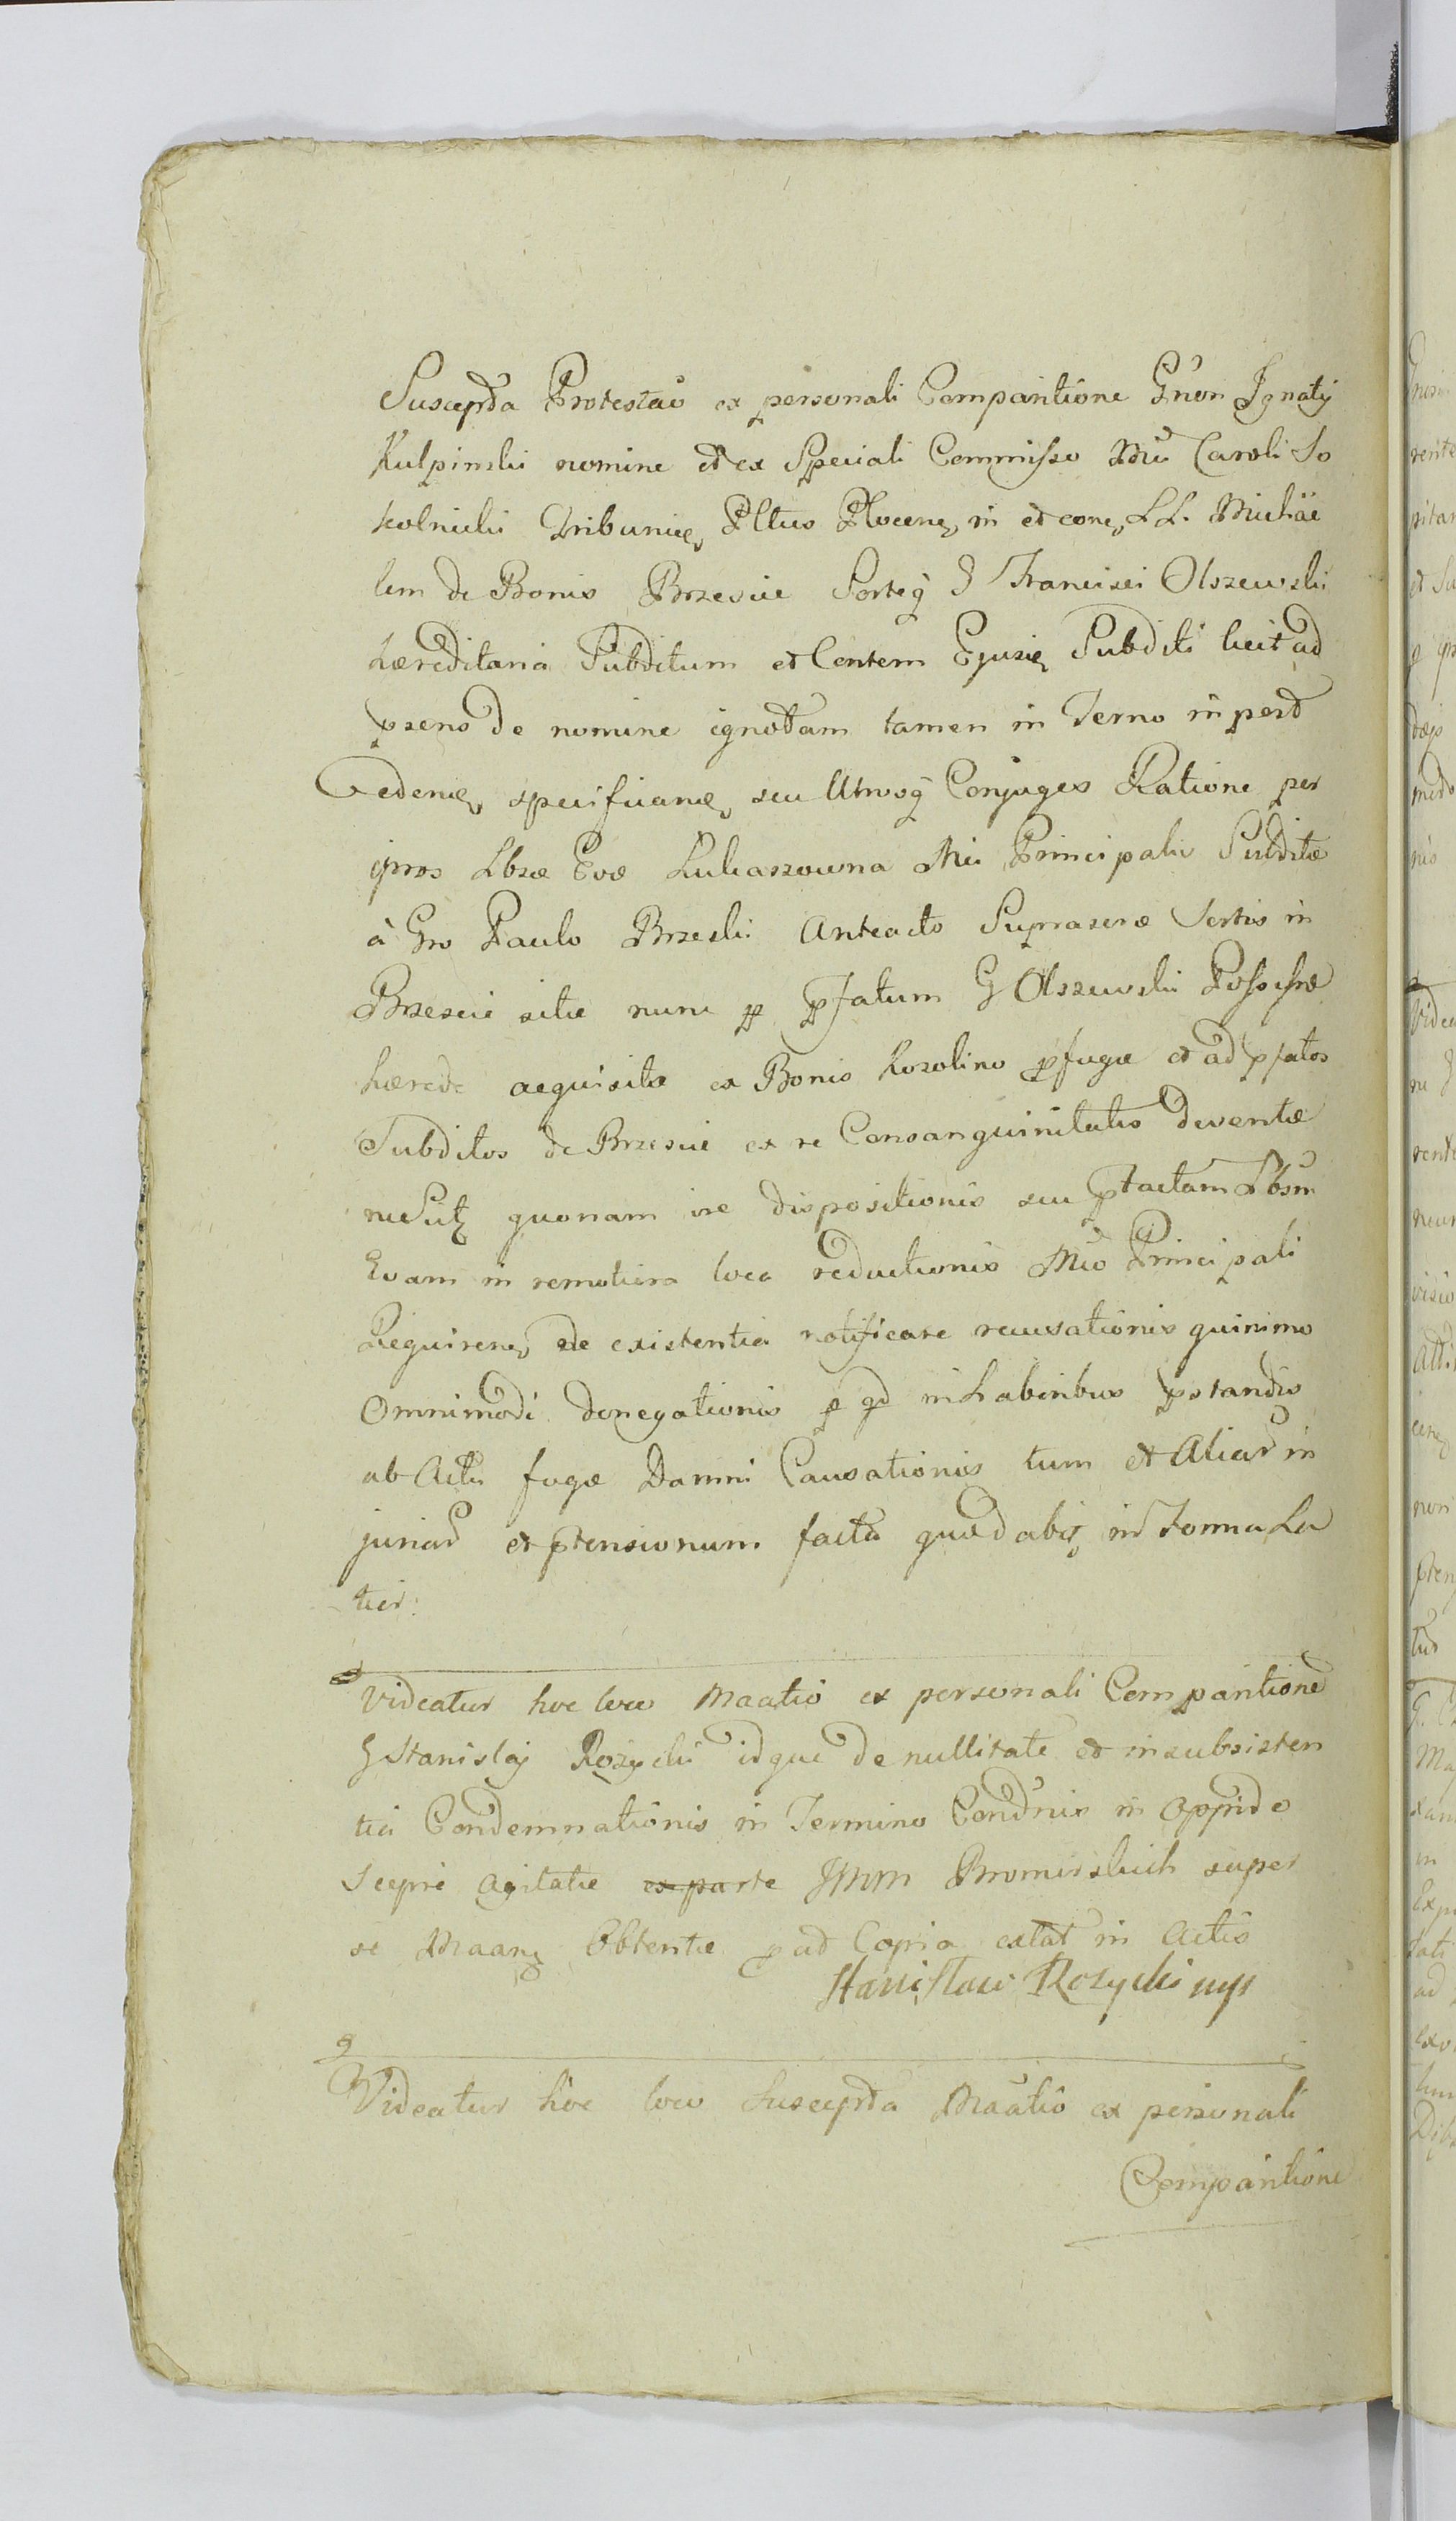 Suscepta Protestaõ ex personali Comparitione Gñõn Ignatÿ
Kulpinski nomine et ex Speciali Commisso Mci Caroli So
kolnicki Tribuni Pltus Plocen in et con LL. Michäe
lem de Bonis Brzescie Sorte G Francisci Olszewski
hæreditaria Subditum et Contem Ejus Subditi licet ad
psens de nomine ignotam tamen in Termo
edene, specificane, seu Utrosq Conjuges Ratione per
ipsos Lbsæ Evæ Lukaszowna Mci Principalis Subditæ
à Gro Paulo Brzeski Anteacto Suprascræ Sortis in
Brzescie sitæ nunc p pfatum G Olszewski Possesræ
hærede acquisitæ ex Bonis Kozolino pfugæ et ad pfatos
Subditos de Brzescie ex re Consanguinitatis deventæ
quonam in dispositionis seu ptactam Lbsm
Evam in remotiora loca reductionis Mco Principali
Requiren de existentia notificare recusationis quinimo
Omnimodi denegationis inhabenibus pstandis
ab Actu fugæ Damni Causationis tum et Aliar in
juriar et ptensionum facta in Forma La
tior:
Videatur hoc loco Maatio ex personali Comparitione
G Stanislaj Rozycki idque de nullitate et insubsisten
tia Condemnationis in Termino Condnis in Oppido
Sierpc agitatæ ex parte JMM Bromirskich super
se Maan Obtentæ Copia extat in Actis
Stanisław Rozycki mp
Videatur hoc loco Suscepta Maatio ex personali
Comparitione